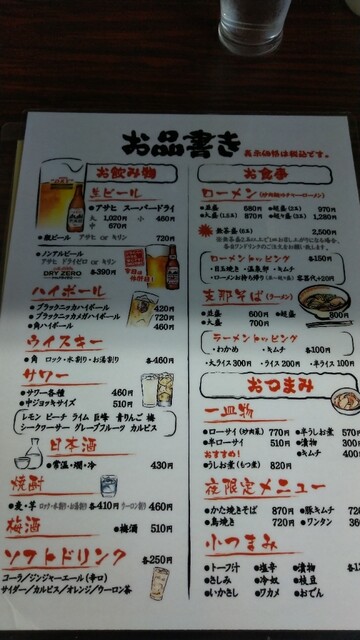 お品書き
表示価格は税込です。
お飲み物
生ビール
●アサヒ スーパードライ
大 1,020円 小 460円
中 670円
●瓶ビール アサヒ or キリン 720円
●ノンアルビール
アサヒ ドライゼロ or キリン
DRY ZERO
各390円
ハイボール
●ブラックニッカハイボール 420円
●ブラックニッカメガハイボール 720円
●角ハイボール 460円
ウイスキー
●角 ロック・水割り・お湯割り 各460円
サワー
●サワー各種 460円
●中ジョッキサイズ 510円
レモン ピーチ ライム 巨峰 青りんご 梅
シークヮーサー グレープフルーツ カルピス
日本酒
●常温・燗・冷 430円
焼酎
●麦・芋 ロック・水割り・お湯割り 各410円 ウーロン割 460円
梅酒
●梅酒 510円
ソフトドリンク
各250円
コーラ/ジンジャーエール(辛口)
サイダー/カルピス/オレンジ/ウーロン茶
お食事
ローメン
●並盛 680円 ●超盛 (2玉) 970円
●大盛 (1.5玉) 870円 ●超々盛 (3玉) 1,280円
2,500円
ローメントッピング
各150円
・目玉焼き ・温泉卵 ・キムチ
・ローメンお持ち帰り 容器代+20円
支那そば(ラーメン)
●並盛 600円 ●超盛 800円
●大盛 700円
ラーメントッピング
・わかめ ・キムチ 各100円
・大ライス 300円 ・ライス 200円 ・半ライス 100円
おつまみ
一皿物
●ローサイ(炒肉菜) 770円 ●半うしお 570円
●半ローサイ 510円 ●漬物 300円
おすすめ!
●キムチ 400円
●うしお煮(もつ煮) 820円
夜限定メニュー
●かた焼きそば 870円 ●豚キムチ 720円
●鳥焼き 720円 ●ワンタン 360円
小つまみ
●トーフ汁 ●塩辛 ●漬物
●さしみ ●冷奴 ●枝豆
●いかさし ●ワカメ ●おでん